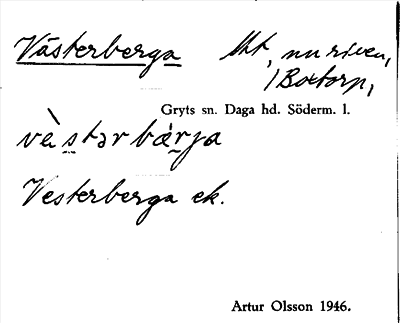 Västerberga
lht, nu riven,
/ Boxtorp,
Gryts sn. Daga hd. Söderm. l.
vèstərbærja
Vesterberga ek.
Artur Olsson 1946.